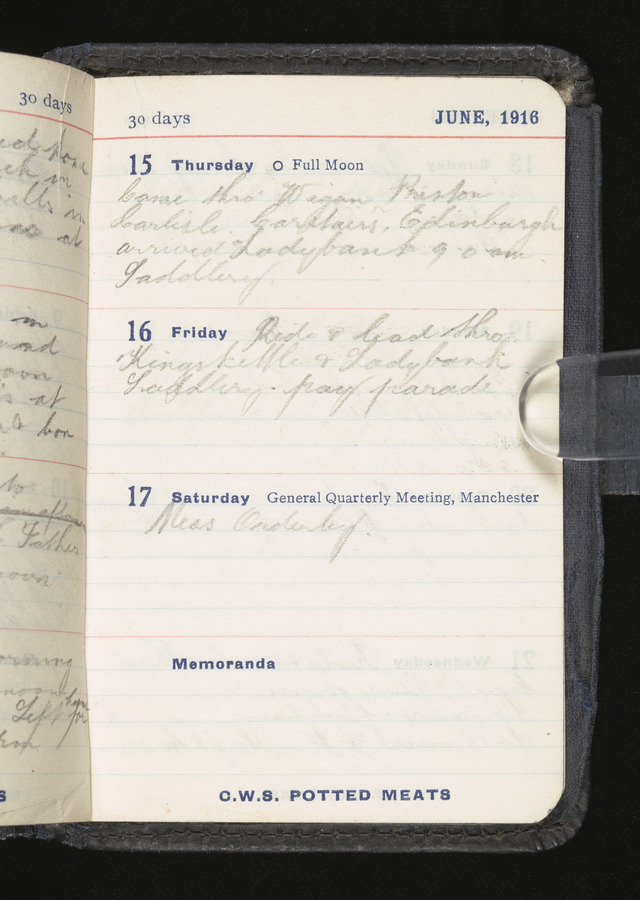 30 days
in
and
at
bon
to
Father
noon
Left for
30 days JUNE, 1916
15 Thursday O Full Moon
Came thro' Wigan Preston
Carlisle. Carstairs, Edinburgh
arrived Ladybank 9-0 am.
Saddlery.
16 Friday Ride & lead thro
Kingskettle & Ladybank
Saddlery. pay parade
17 Saturday General Quarterly Meeting, Manchester
Mess Orderly.
Memoranda
C.W.S. POTTED MEATS